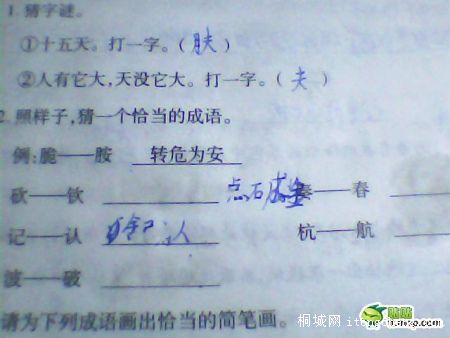 1. 猜字谜。
①十五天。打一字。(肤)
②人有它大,天没它大。打一字。(夫)
2. 照样子,猜一个恰当的成语。
例:脆——胺 转危为安
砍——钦 点石成金 秦——春
记——认 舍己 人 杭——航
波——破
请为下列成语画出恰当的简笔画。
桐城网